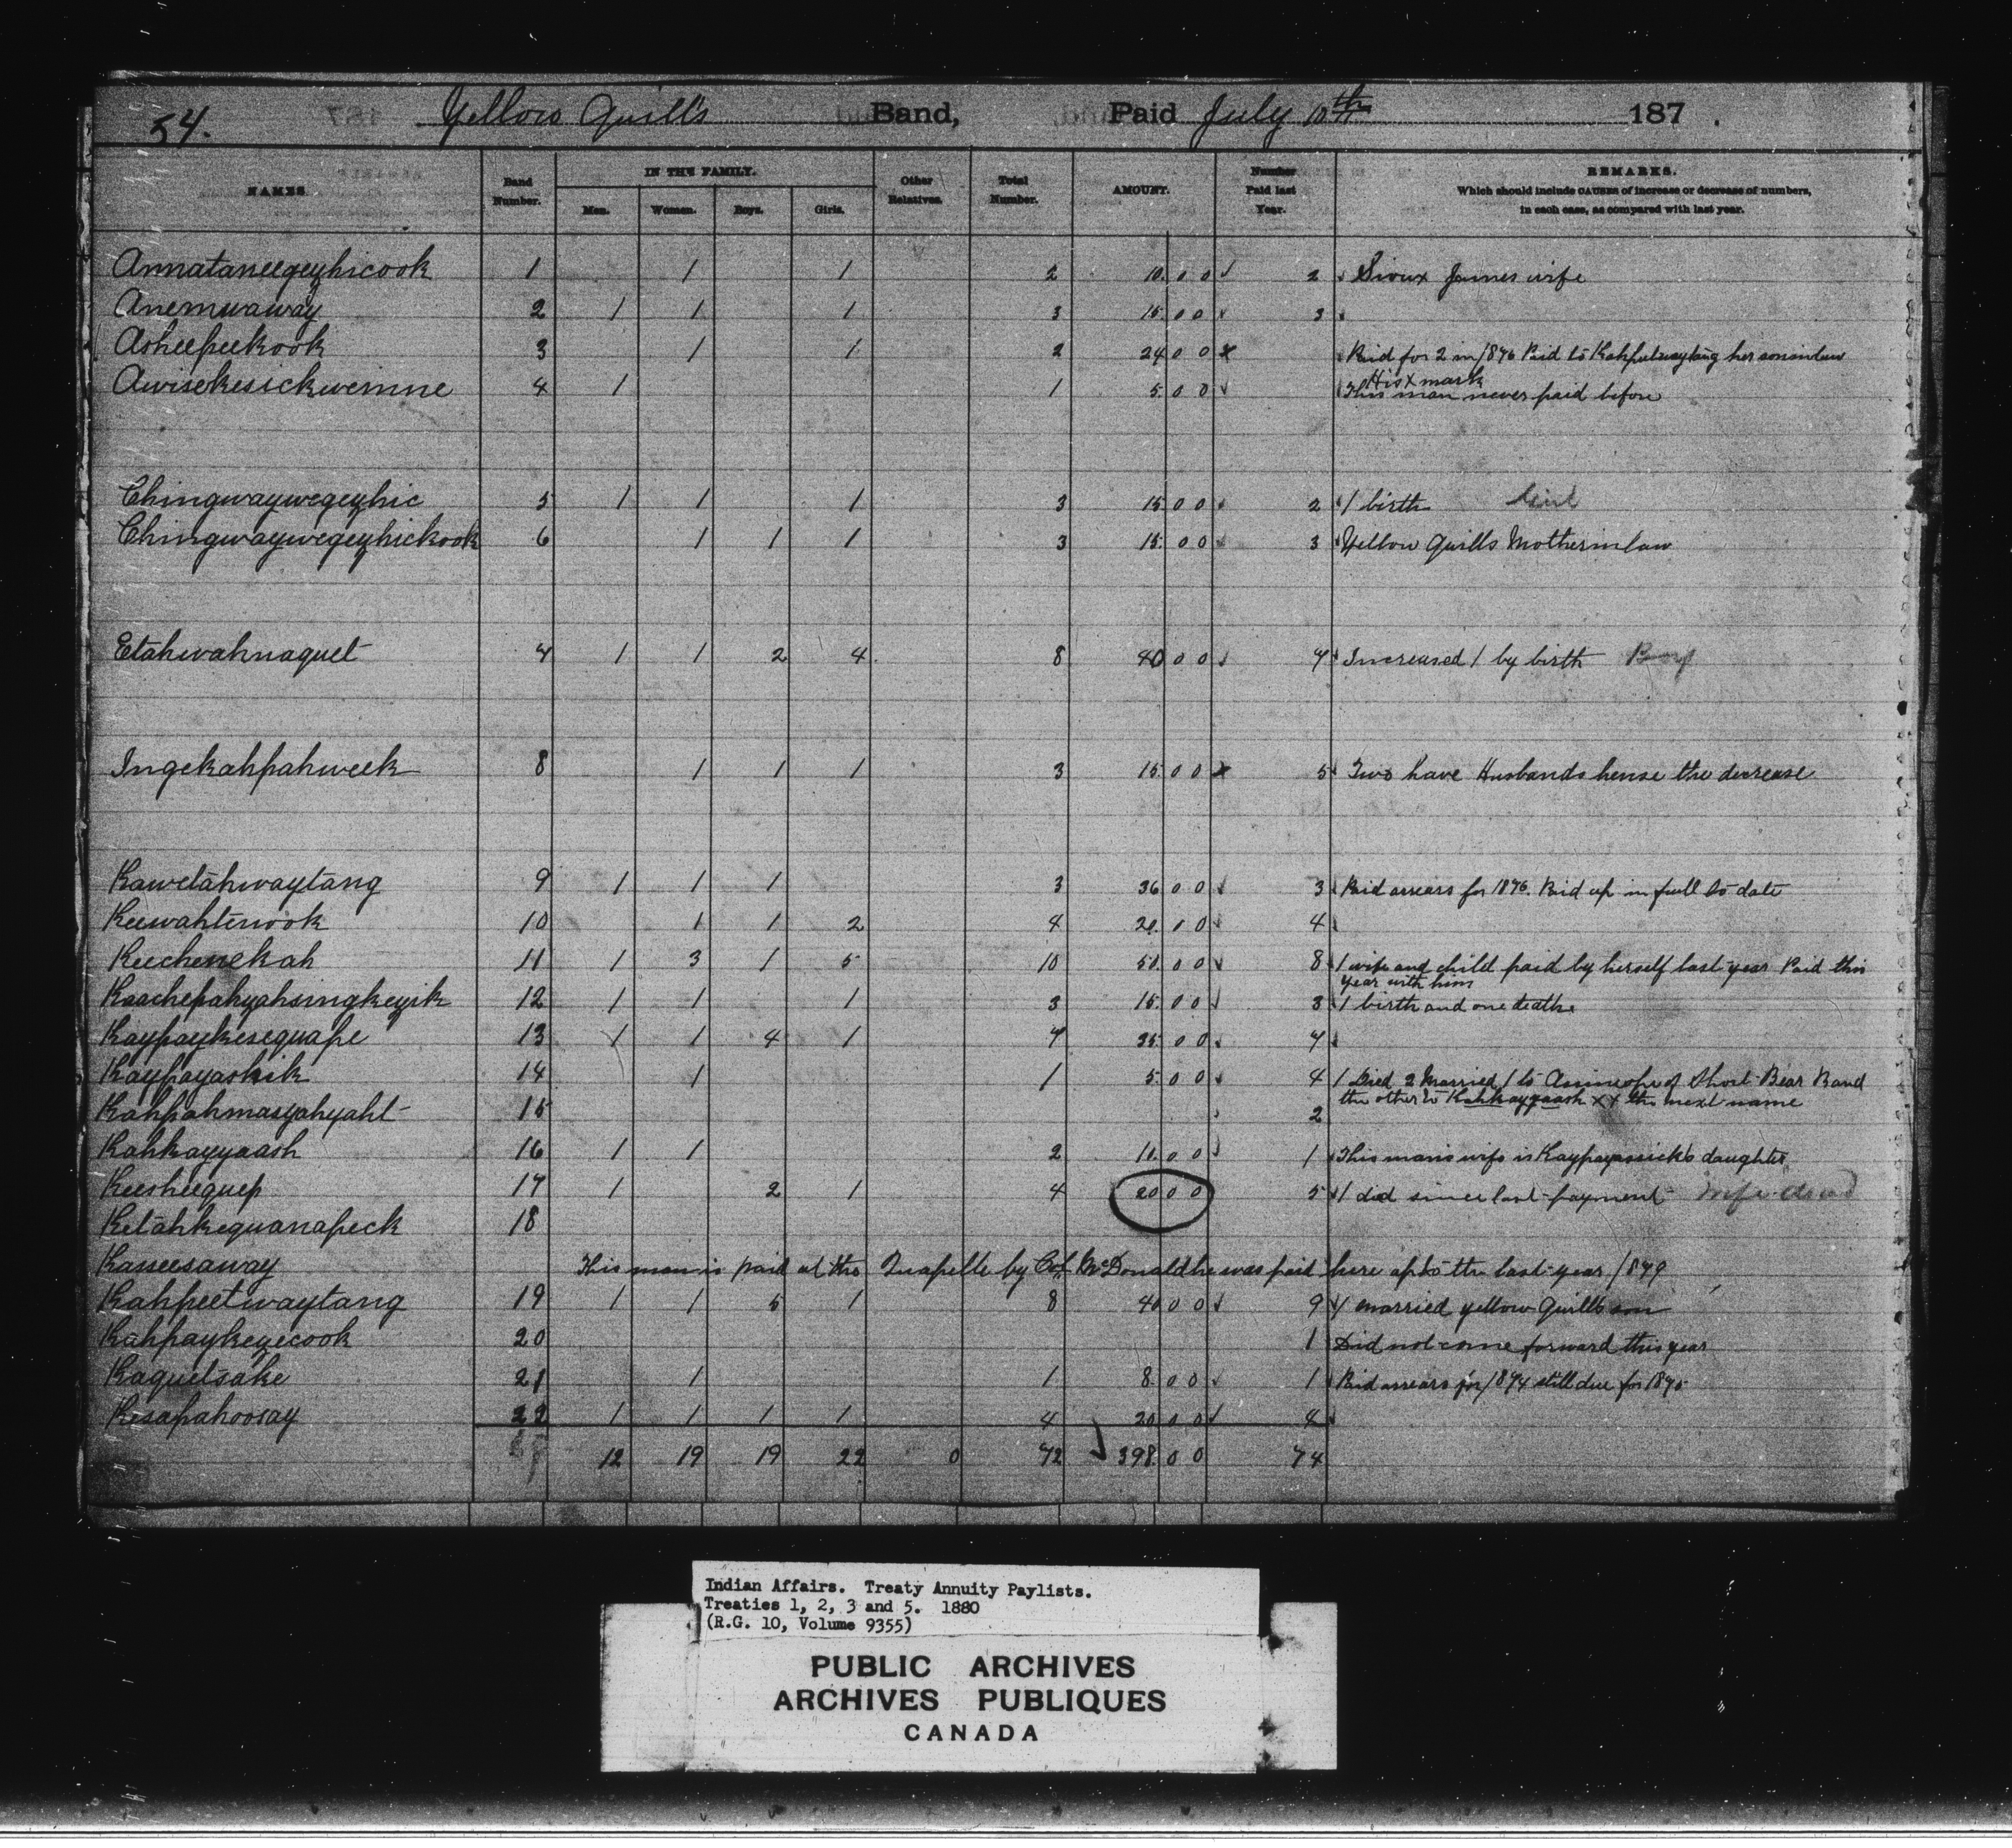 54. Yellow Quill's Band, Paid July 10th 187 .
NAMES. Band Number. IN THE FAMILY. Men. Women. Boys. Girls. Other Relatives. Total Number. AMOUNT. Number Paid last Year. REMARKS.
Which should include CAUSES of increase or decrease of numbers,
in each case, as compared with last year.
Annataneegeyhicook 1 1 1 2 10.00 ✓ 2 Sioux James wife
Anemwaway 2 1 1 1 3 15.00 ✓ 3
Asheepeekook 3 1 1 2 24 00 x Paid for 2 in 1876 Paid to Kahpeetwaytang her soninlaw
His x mark
Awisekesickweinne 4 1 1 5.00 ✓ This man never paid before
Chingwaywegeyhic 5 1 1 1 3 15 00 ✓ 2 1 birth Girl
Chingwaywegeyhickook 6 1 1 1 3 15.00 ✓ 3 Yellow Quills Motherinlaw
Etahwahnaquet 7 1 1 2 4 8 40 00 ✓ 7 Increased 1 by birth Boy
Ingekahpahweek 8 1 1 1 3 15 00 x 5 Two have Husbands hense the decrease
Kawetahwaytang 9 1 1 1 3 36 00 ✓ 3 Paid arrears for 1876. Paid up in full to date
Keewahtenook 10 1 1 2 4 20.00 ✓ 4
Keechenekah 11 1 3 1 5 10 50.00 ✓ 8 1 wife and child paid by herself last year Paid this
year with him
Kaachepahyahsingkeyik 12 1 1 1 3 15.00 ✓ 3 1 birth and one death
Kaypaykesequape 13 1 1 4 1 7 35.00 ✓ 7
Kaypayashik 14 1 1 5.00 ✓ 4 1 Died 2 Married 1 to of Short Bear Band
the other to Kahkayyaash x x the next name
Kahpahmasyahyaht 15 2
Kahkayyaash 16 1 1 2 10.00 ✓ 1 This mans wife is Kaypayassick's daughter
Keesheequep 17 1 2 1 4 20 00 5 1 died since last payment Wife dead
Ketahkequanapeck 18
Kaseesaway This man is paid at the Quapelle by Col McDonald he was paid here upto the last year /879
Kahpeetwaytang 19 1 1 5 1 8 40 00 ✓ 9 1 married yellow Quills son
Kahpaykeyecook 20 1 Did not come forward this year
Kaquetsake 21 1 1 8.00 ✓ 1 Paid arrears for 1874 still due for 1875
Kesapahoosay 22 1 1 1 1 4 20.00 ✓ 4
12 19 19 22 0 72 ✓ 398.00 74
Indian Affairs. Treaty Annuity Paylists.
Treaties 1, 2, 3 and 5. 1880
(R.G. 10, Volume 9355)
PUBLIC ARCHIVES
ARCHIVES PUBLIQUES
CANADA